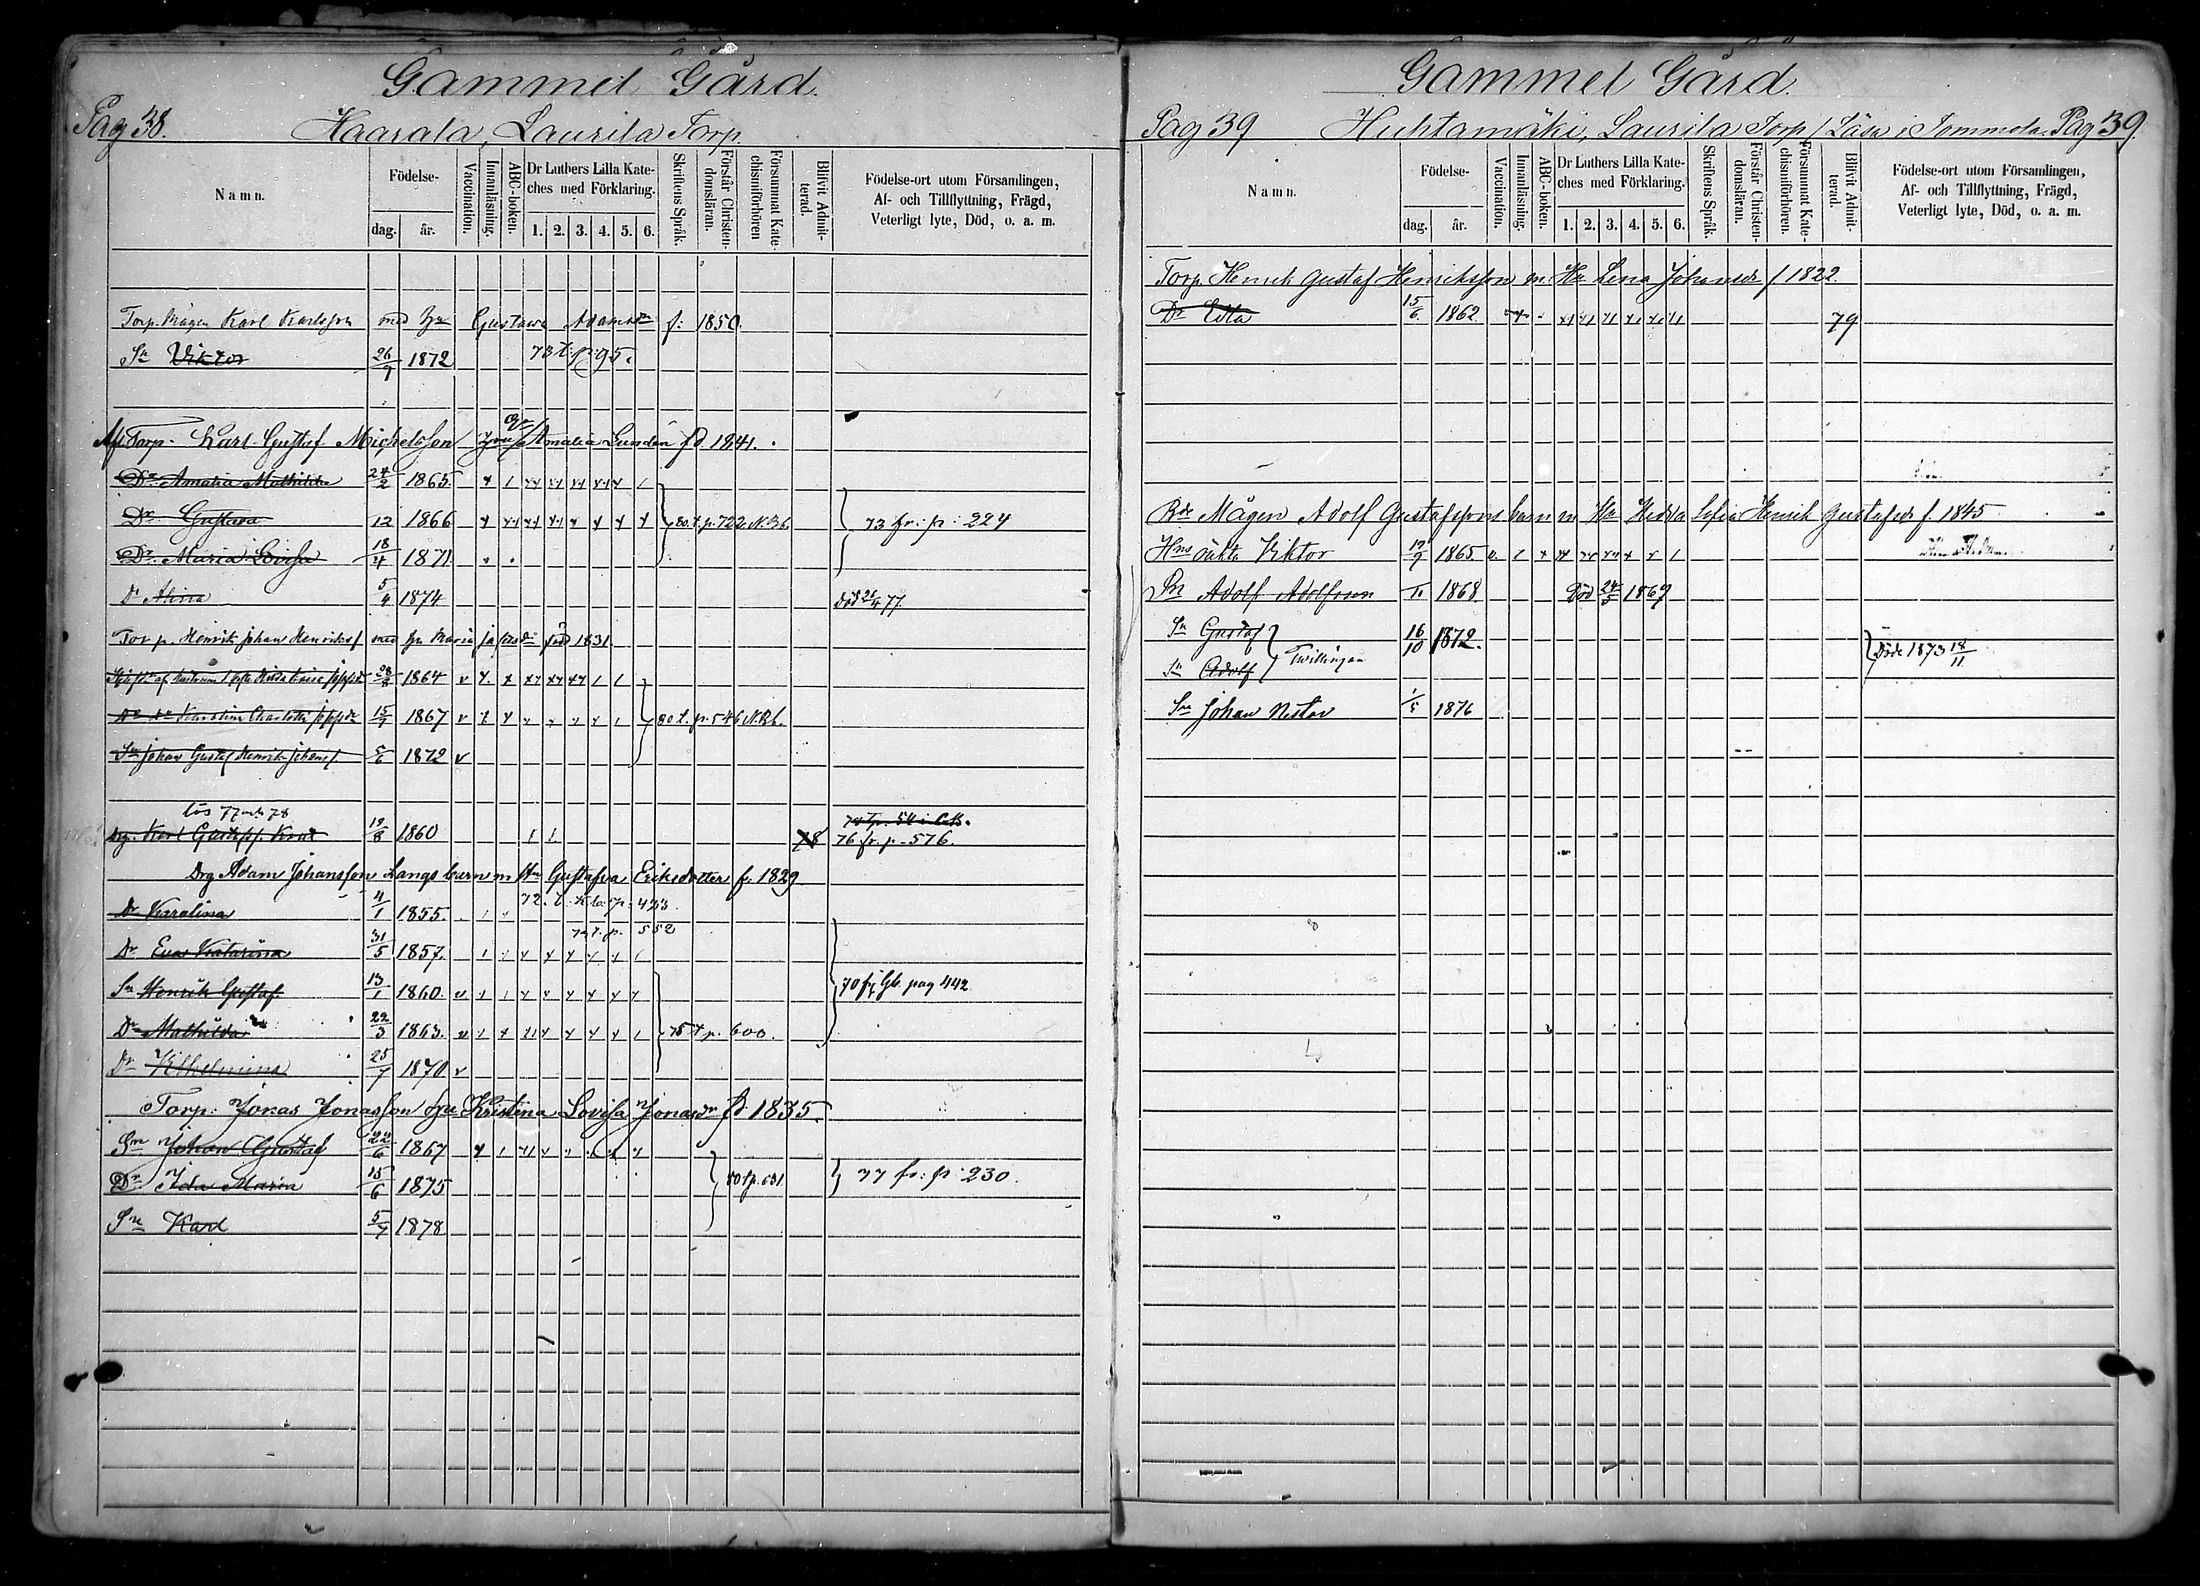 Gammel Gård.
Pag 38. Haarala, Laurila Torp.
Namn. Födelse- dag. år. Vaccination. Innanläsning. ABC-boken. Dr Luthers Lilla Kate-ches med Förklaring. 1. 2. 3. 4. 5. 6. Skriftens Språk. Förstår Christen-domsläran. Försummat Kate-chismiförhören Blifvit Admit-terad. Födelse-ort utom Församlingen, Af- och Tillflyttning, Frägd, Veterligt lyte, Död, o. a. m.
Torp. Mågen Karl Karlsson med Hu Gustava Adamsdr f: 1850.
Sn Viktor 26/9 1872 73 t. p. 95.
Afl. Torp. Karl Gustaf Michelsson Amalia Lunden fd 1841.
Dr Amalia Mathilda 24/2 1865.
Dr Gustava 12 1866 80. t. p. 722 N.B6. 73 fr: p: 224
Dr Maria Lovisa 18/4 1871
Dr Alina 5/4 1874 död 21/4 77.
Torp. Henrik Johan Henriks/ med hu Maria född 1831.
1864
15/7 1867 80 t. p. 546 N.B6.
Sn Johan Gustaf Henrik Johans/. 5/6 1872
läs 77 och 78
Drg. Karl Gustafss. Knut 19/8 1860 78 76 fr. p. 576.
Drg Adam Johansson Langs barn m Hu Gustafva Eriksdotter f. 1829
Dr Karolina 4/1 1855. 72. t. p. 423.
Dr Eva Katarina 31/5 1857. t. p. 552
Sn Henrik Gustaf 13/1 1860. 70 fr Gb. pag 442
Dr Mathilda 22/3 1863. 75 t p. 600.
Dr Vilhelmina 25/7 1870
Torp: Jonas Jonasson Hu Kristina Lovisa Jonasdr fd 1835.
Sn Johan Gustaf 22/6 1867
Dr Ida Maria 15/6 1875 80 t p. 631 77 fr: p: 230.
Sn Karl 5/7 1878
Gammel Gård.
Pag 39 Huhtamäki, Laurila Torp / Läsa i Tommola. Pag 39.
Namn. Födelse- dag. år. Vaccination. Innanläsning. ABC-boken. Dr Luthers Lilla Kate-ches med Förklaring. 1. 2. 3. 4. 5. 6. Skriftens Språk. Förstår Christen-domsläran. Försummat Kate-chismiförhören. Blifvit Admit-terad. Födelse-ort utom Församlingen, Af- och Tillflyttning, Frägd, Veterligt lyte, Död, o. a. m.
Torp. Henrik Gustaf Henriksson m. Hu Lena Johansdr f 1822.
Dr Edla 15/6 1862 79
Rde Mågen Adolf Gustafssons barn m Hu Hedda Sofia Henrik Gustafsdr f. 1845
Hns oäkta Viktor 19/9 1865.
Sn Adolf Adolfsson 11 1868 Död 24/5 1869
Sn Gustaf 16/10 1872. Tvillingar
Sn Adolf Döde 1873 18/11
Sn Johan Nestor 1/5 1876